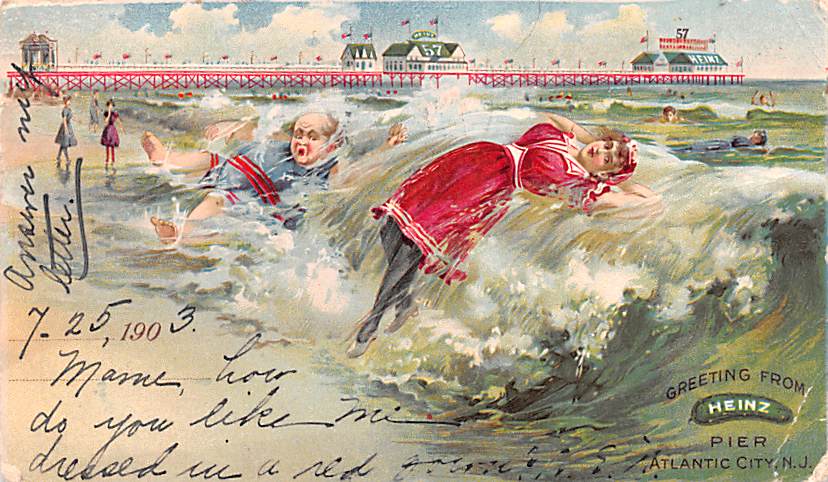 HEINZ
57
57
HEINZ
Answer my
letter.
7-25, 1903.
Mame, how
do you like me
dressed in a red
GREETING FROM
HEINZ
PIER
ATLANTIC CITY, N.J.